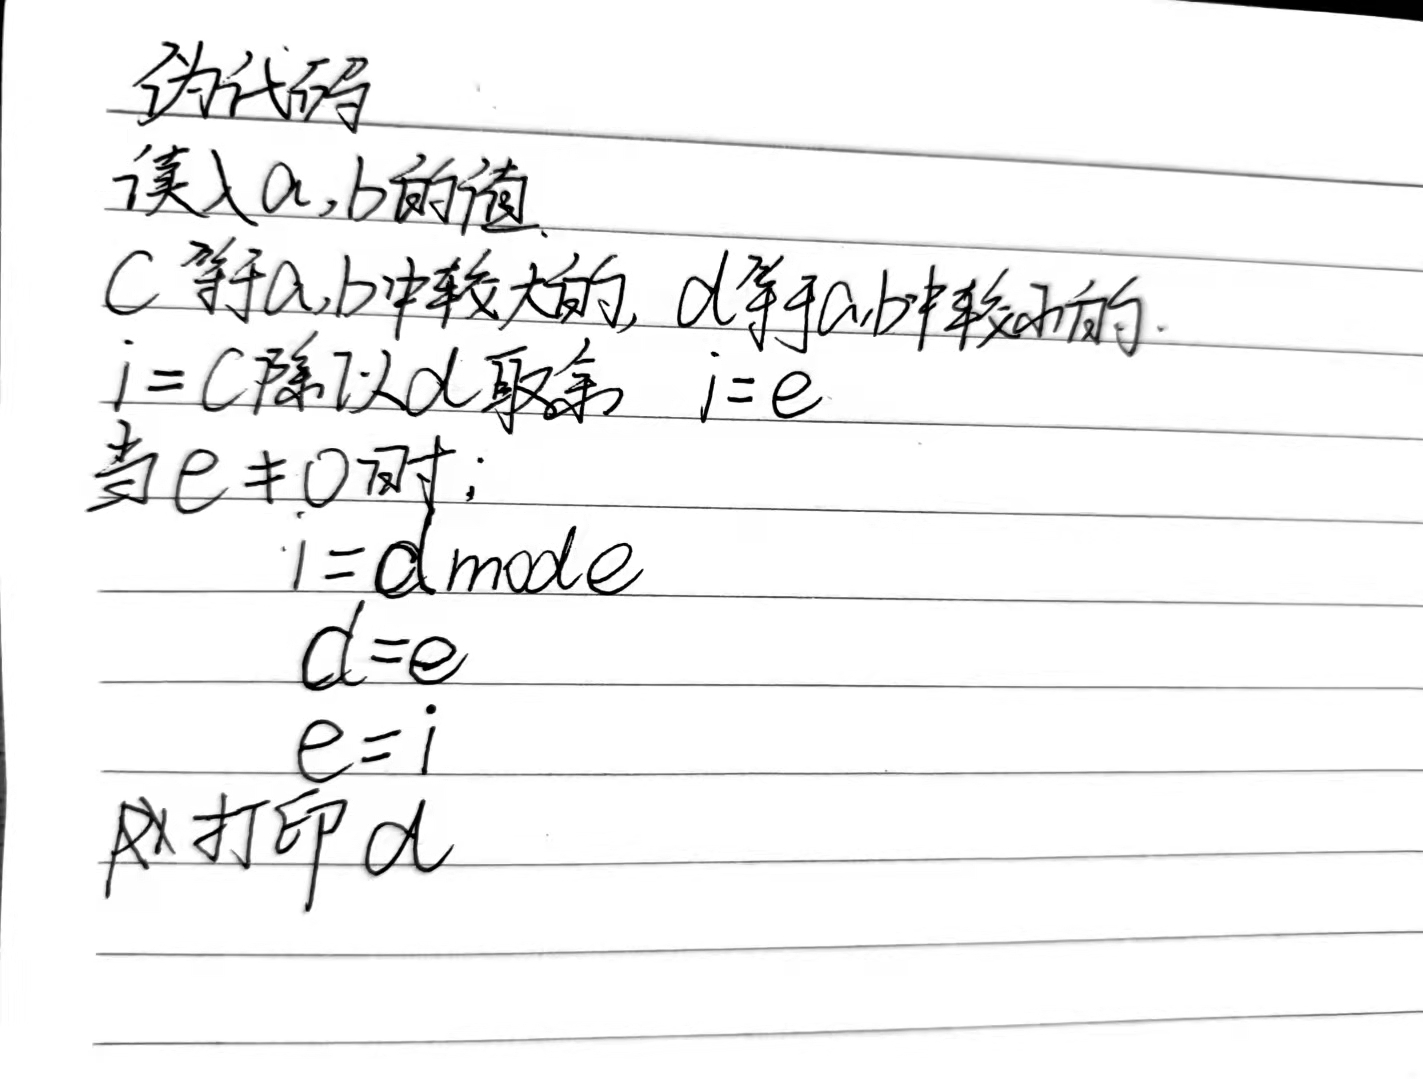 伪代码
读入a,b的值.
C等于a,b中较大的, d等于a,b中较小的.
i=C除以d取余 i=e
当e≠0时;
i=d mod e
d=e
e=i
打印d